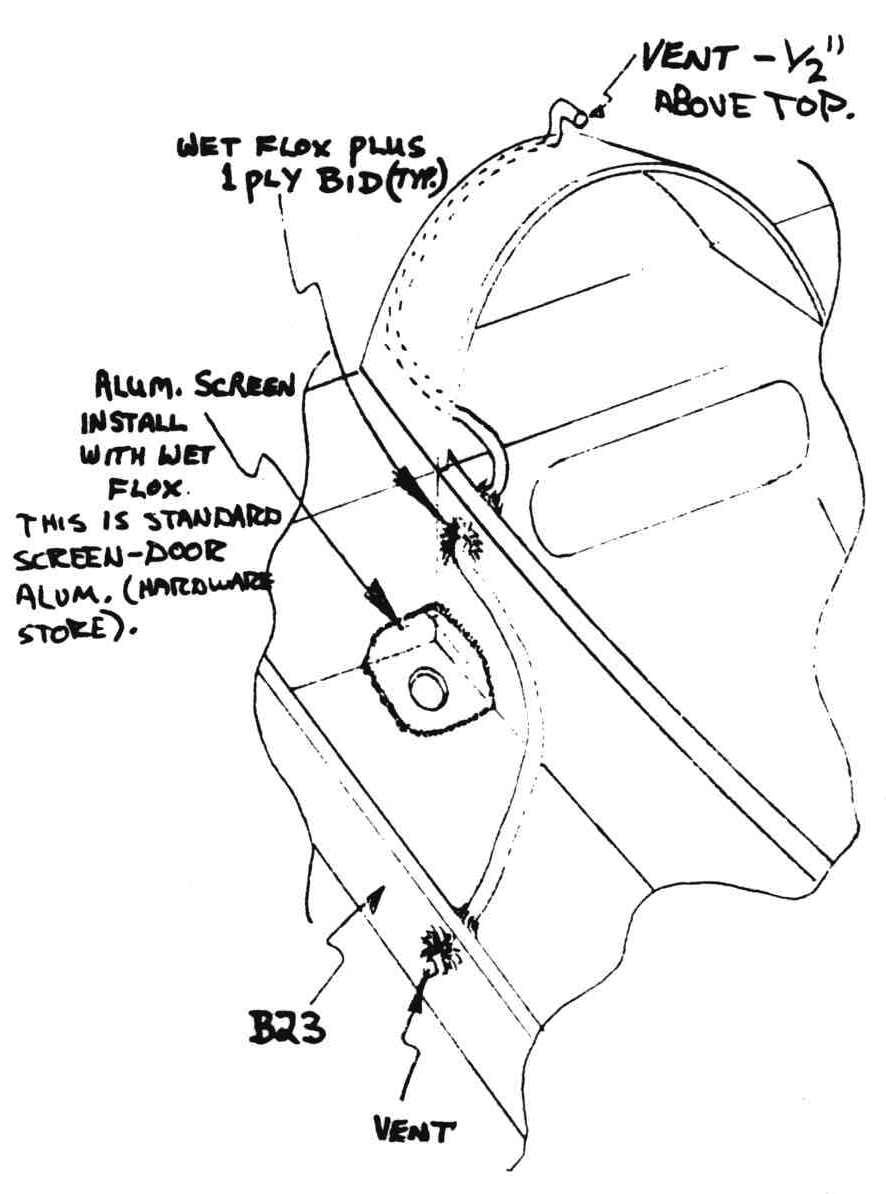 VENT - 1/2"
ABOVE TOP.
WET FLOX PLUS
1 PLY BID (TYP.)
ALUM. SCREEN
INSTALL
WITH WET
FLOX.
THIS IS STANDARD
SCREEN-DOOR
ALUM. (HARDWARE
STORE).
B23
VENT